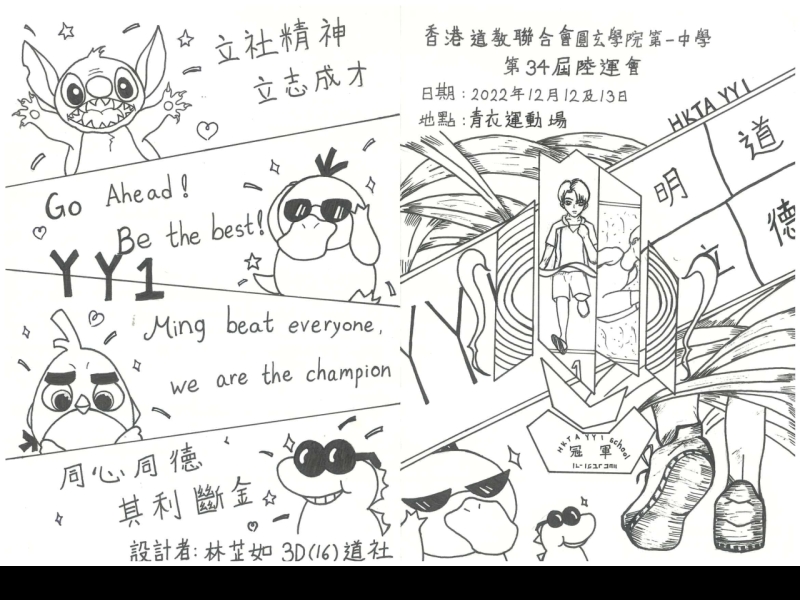 立社精神
立志成才
Go Ahead!
Be the best!
YY1
Ming beat everyone,
we are the champion
同心同德
其利斷金
設計者: 林芷如 3D(16) 道社
香港道教聯合會圓玄學院第一中學
第34屆陸運會
日期:2022年12月12及13日
地點:青衣運動場
HKTA YY1
明 道
立 德
YY
1
HKTA YY1 School
冠軍